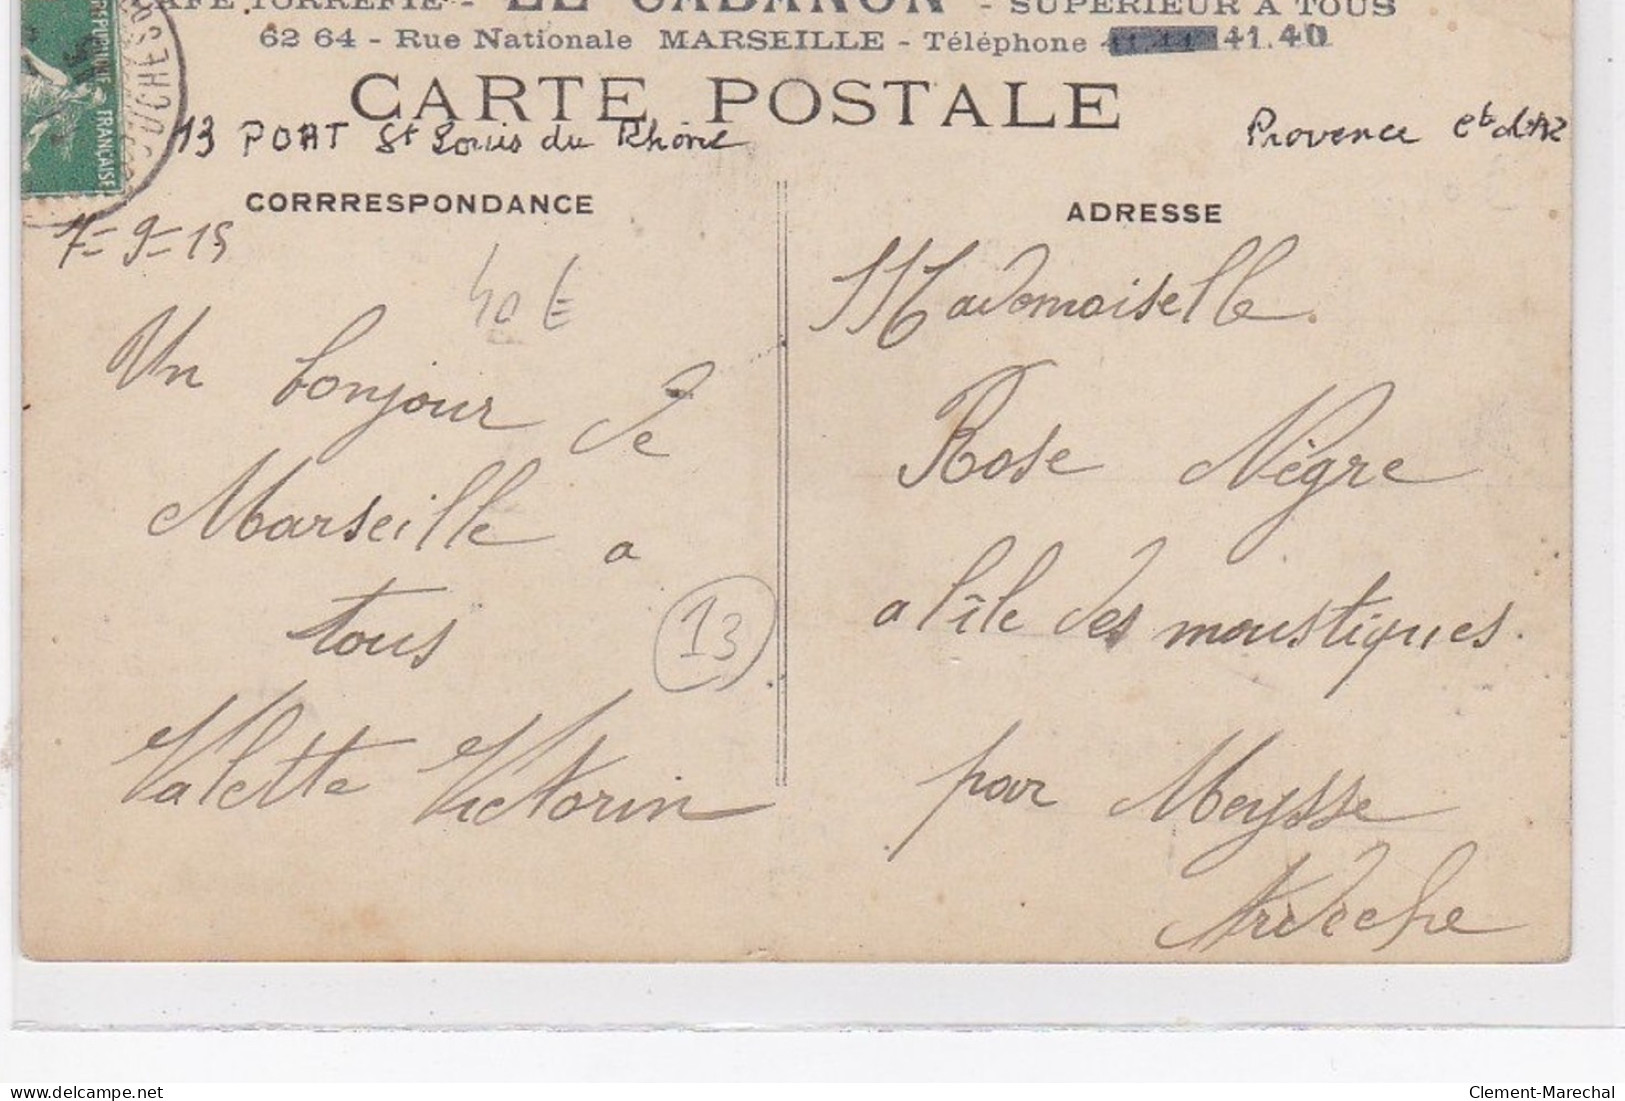 CAFÉ TORRÉFIÉ - LE CABANON - SUPÉRIEUR A TOUS
62 64 - Rue Nationale MARSEILLE - Téléphone 41.40
CARTE POSTALE
13 PORT St Louis du Rhône
Provence
CORRRESPONDANCE
ADRESSE
RÉPUBLIQUE FRANÇAISE
7-9-15
40 €
Un bonjour de
Marseille a
tous
13
Valette Victorin
Mademoiselle.
Rose Nègre
a l'île des moustiques.
par Meysse
Ardèche
Clement-Marechal